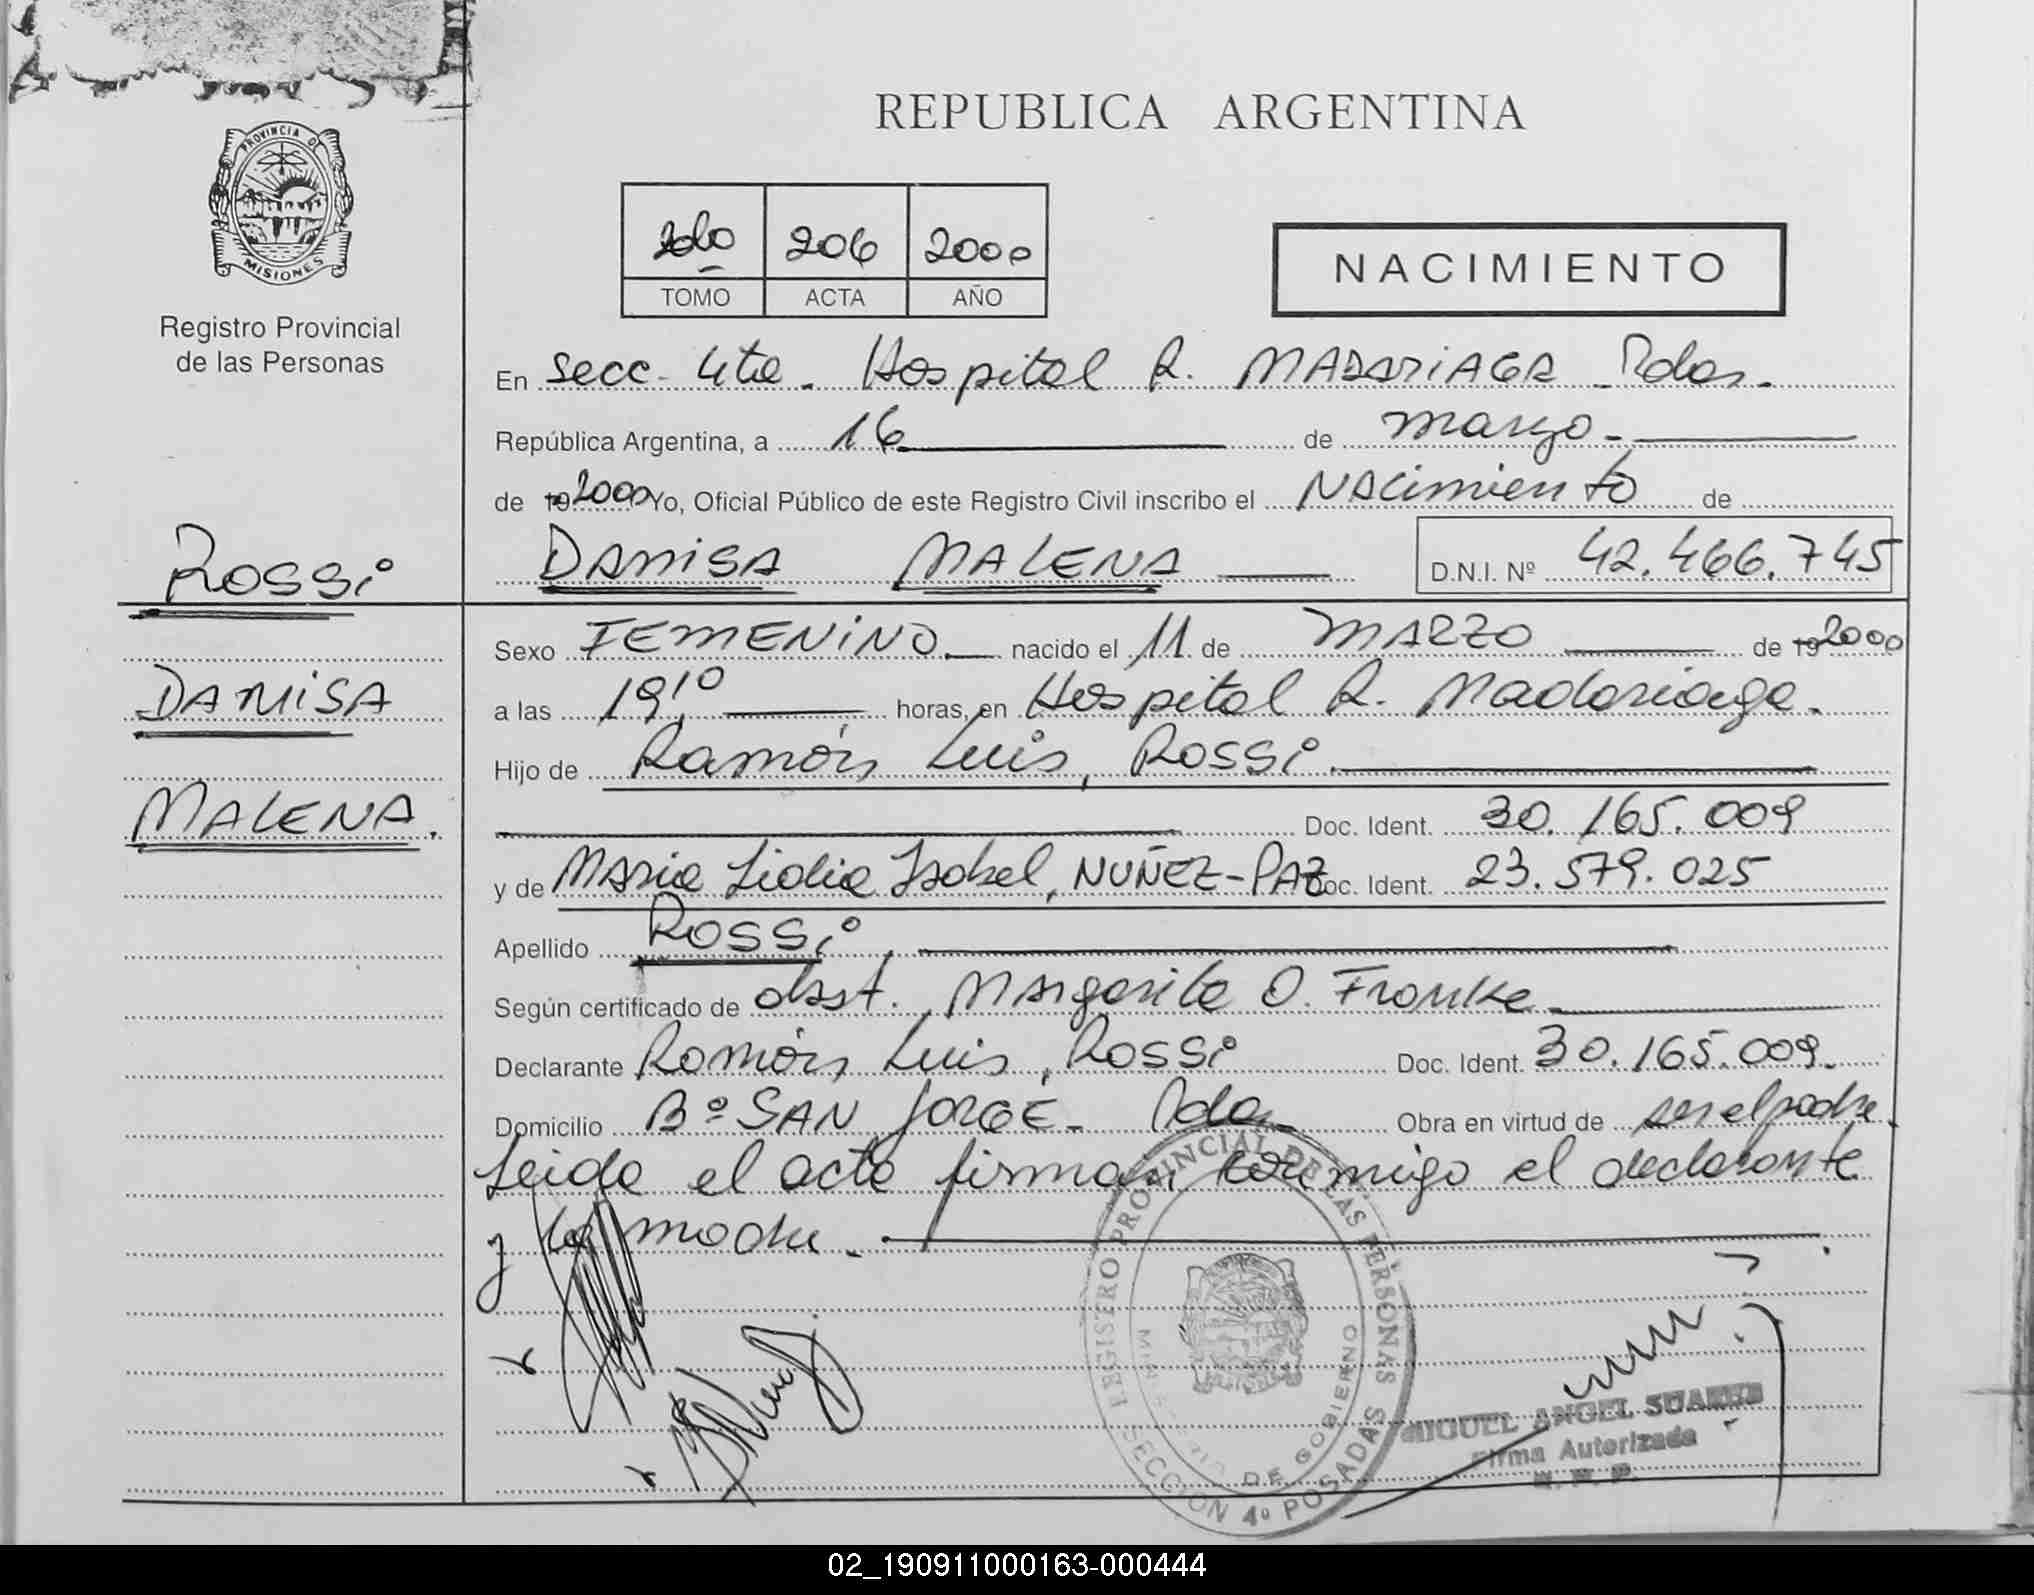 PROVINCIA D
MISIONES
Registro Provincial
de las Personas
REPUBLICA ARGENTINA
2do 206 2000
TOMO ACTA AÑO
NACIMIENTO
En Secc. 4ta. Hospital R. MADARIAGA - Pdas.
República Argentina, a 16 de marzo.
de 19 2000 Yo, Oficial Público de este Registro Civil inscribo el NACimiento de
Rossi
DAMISA MALENA D.N.I. Nº 42.466.745
Sexo FEMENINO nacido el 11 de MARZO de 19 2000
DAMISA
a las 19,10 horas, en Hospital R. Madariaga.
Hijo de Ramón Luis, Rossi.
MALENA.
Doc. Ident. 30.165.009
y de Maria Lidia Isabel, NUÑEZ-PAZ Doc. Ident. 23.579.025
Apellido Rossi,
Según certificado de obst. Margarita O. Franke
Declarante Ramón Luis, Rossi Doc. Ident. 30.165.009.
Domicilio Bº SAN JORGE - Pdas. Obra en virtud de ser el padre.
Leida el acta firman conmigo el declarante
y la madre.
REGISTRO PROVINCIAL DE LAS PERSONAS
MINISTERIO DE GOBIERNO
SECCION 4º POSADAS
MIGUEL ANGEL SUAREZ
Firma Autorizada
02_190911000163-000444